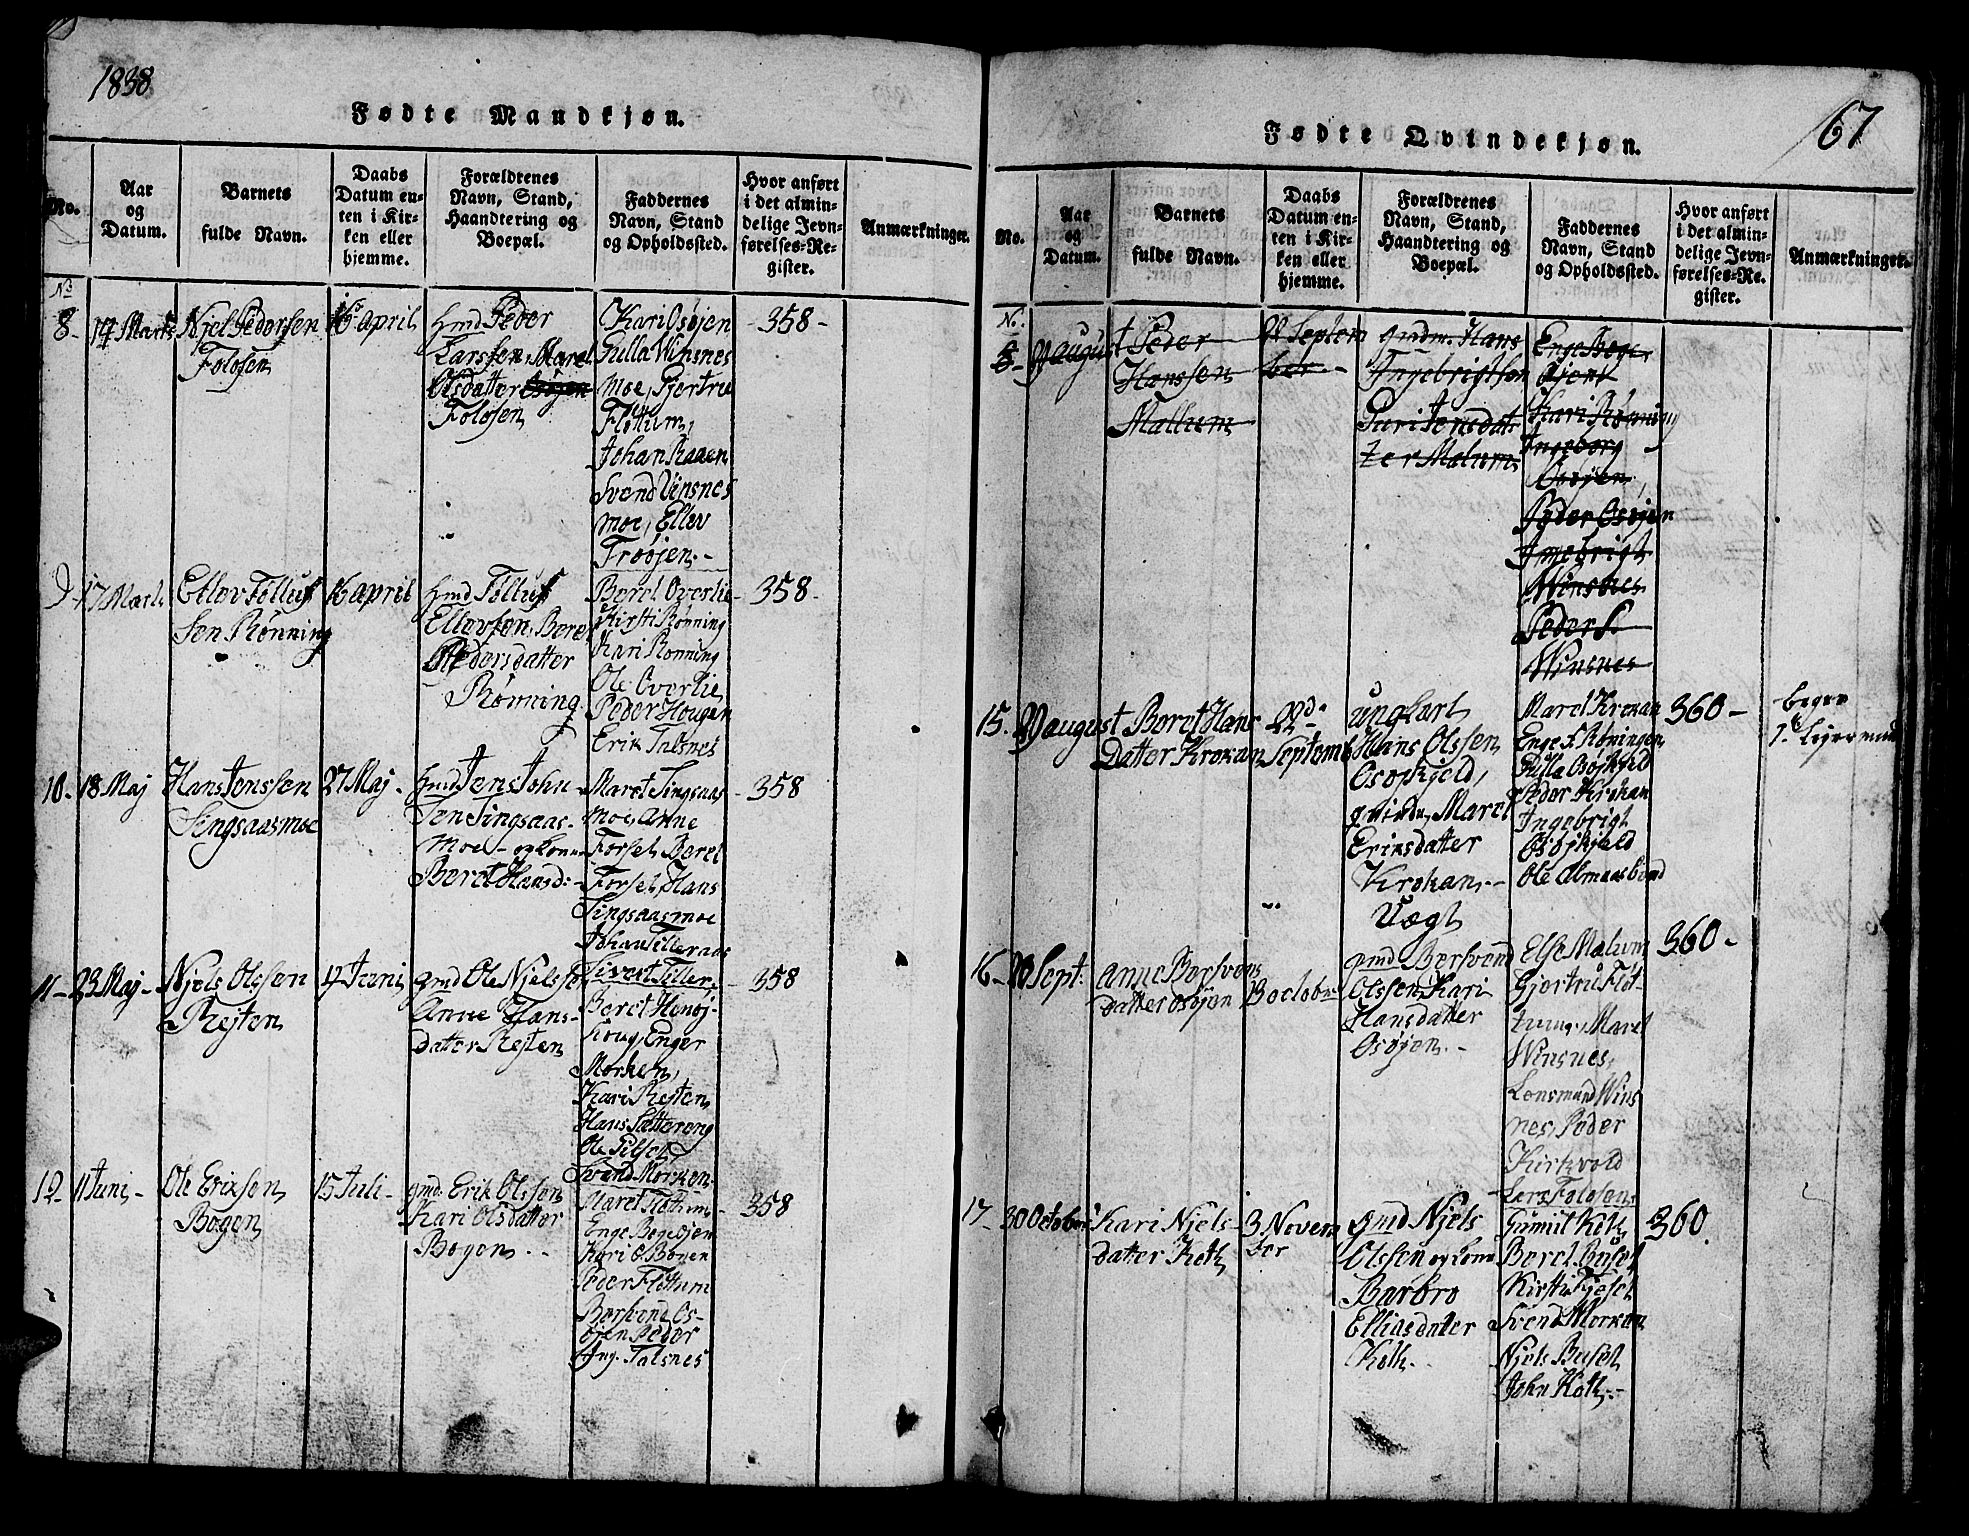 1838
Fødte Mandkjøn.
No.
Aar
og
Datum.
Barnets
fulde Navn.
Daabs
Datum en-
ten i Kir-
ken eller
hjemme.
Forældrenes
Navn, Stand,
Haandtering og
Boepæl.
Faddernes
Navn, Stand
og Opholdssted.
Hvor anført
i det almin-
delige Jevn-
førelses-Re-
gister.
Anmærkninger.
No
8-
Njel Pedersen
Folosen
16 april
Gmd Peder
Larssen, Maret
Olsdatter Osøjen
Folosen
Kari Osøjen
Gulla Winsnes
moe, Gjertru
Flottum,
Johan Raaen
Svend Vinsnes
moe, Ellev
Trøøjen.-
-358-
9-
17 Marts
Ellev Tollef
sen Rønning
16 april
Gmd Tollef
Ellevsen, Beret
Pedersdatter
Rønning
Beret Overlie
Kirsti Rønning
Kari Rønning
Ole Overlie
Peder Hougen
Erik Talsnes
358-
10-
18 Maj
Hans Jenssen
Singsaasmoe
27 Maj-
Gmd Jens John
sen Singsaas-
moe- og kone
Beret Hansd:
Maret Singsaas
moe, Anne
Forset, Beret
Forset, Hans
Singsaasmoe
Johan Tilleraas
Sivert Tiller
358
11-
23 Maj-
Njels Olssen
Rejten
17 Juni
gmd Ole Njelssen
Anne Hans-
datter Rejten
Beret Henøj-
Houg, Enger
Morken,
Kari Rejten
Hans Sætterong
Ole Tilset
Svend Morken
358
12-
11 Juni-
Ole Eriksen
Bogen
15 Juli-
gmd: Erik Olssen
Kari Olsdatter
Bogen
Maret Flottum
Enge Bogeøjen
Kari O Bogen
Peder Flottum
Bersvend Os-
øjen Peder
Ing. Talsnes
358
67
Fødte Qvindekjøn.
No.
Aar
og
Datum.
Barnets
fulde Navn.
Daabs
Datum en-
ten i Kir-
ken eller
hjemme.
Forældrenes
Navn, Stand,
Haandtering og
Boepæl.
Faddernes
Navn, Stand
og Opholdssted.
Hvor anført
i det almin-
delige Jevn-
førelses-Re-
gister.
Anmærkninger.
No.
august
Peder
Hanssen
Malhum
Septem
ber-
gmdm. Hans
Ingebrigtsen
Guri Jensdat
ter Malum
Kari Rønning
Ingeborg
Osøjen,
Peder Osøjen
Ingebrigt
Winsnes
Peder S.
Winsnes
15.
august
Beret Hans
Datter Krokan
Septemb
ungkarl
Hans Olssen
Osøkjeld,
qvinde, Maret
Eriksdatter
Krokan.-
Vægt
Maret Krokan
Enge F. Røningen
Gulla Osøjkjeld
Peder Krokan
Ingebrigt
Osøjkjeld
Ole Almaasbond
360-
begge
16-
Sept:
Anne Bersvens
datter Osøjen
13 octob
gmd Bersvend
Olssen, Kari
Hansdatter
Osøjen.-
Else Malum
Gjertru Flot-
tum, Maret
Winsnes,
Lensmand Wins
nes, Peder
Kirkvold
Lars Folosen
360-
17-
30 October
Kari Njels-
datter Koth
3 Novem
ber
gmd Njels
Olssen og kone
Barbro
Elliasdatter
Koth
Gunnil Koth
Beret Buset
Kirsti Kjeset
Svend Morkan
Njels Buset
John Koth.-
360.